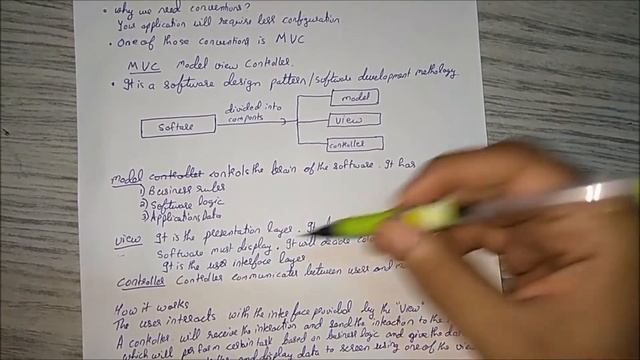 • why we need conventions?
Your application will require less configuration
• One of those conventions is MVC
MVC Model view Controller.
• It is a software design pattern/software development methology
divided into
componts
Softere
model
view
controller
model controller controls the brain of the software. It has
1) Business rules
2) Software logic
3) Applications Data
view It is the presentation layer. It
Software must display. It will decide
It is the user interface layer
Controller Controller communicates between users and
How it works
The user interacts with the interface provided by the "View"
A controller will receive the interaction and send the interaction to the
which will perform certain task based on business logic and give the
and display data to screen using one of the view